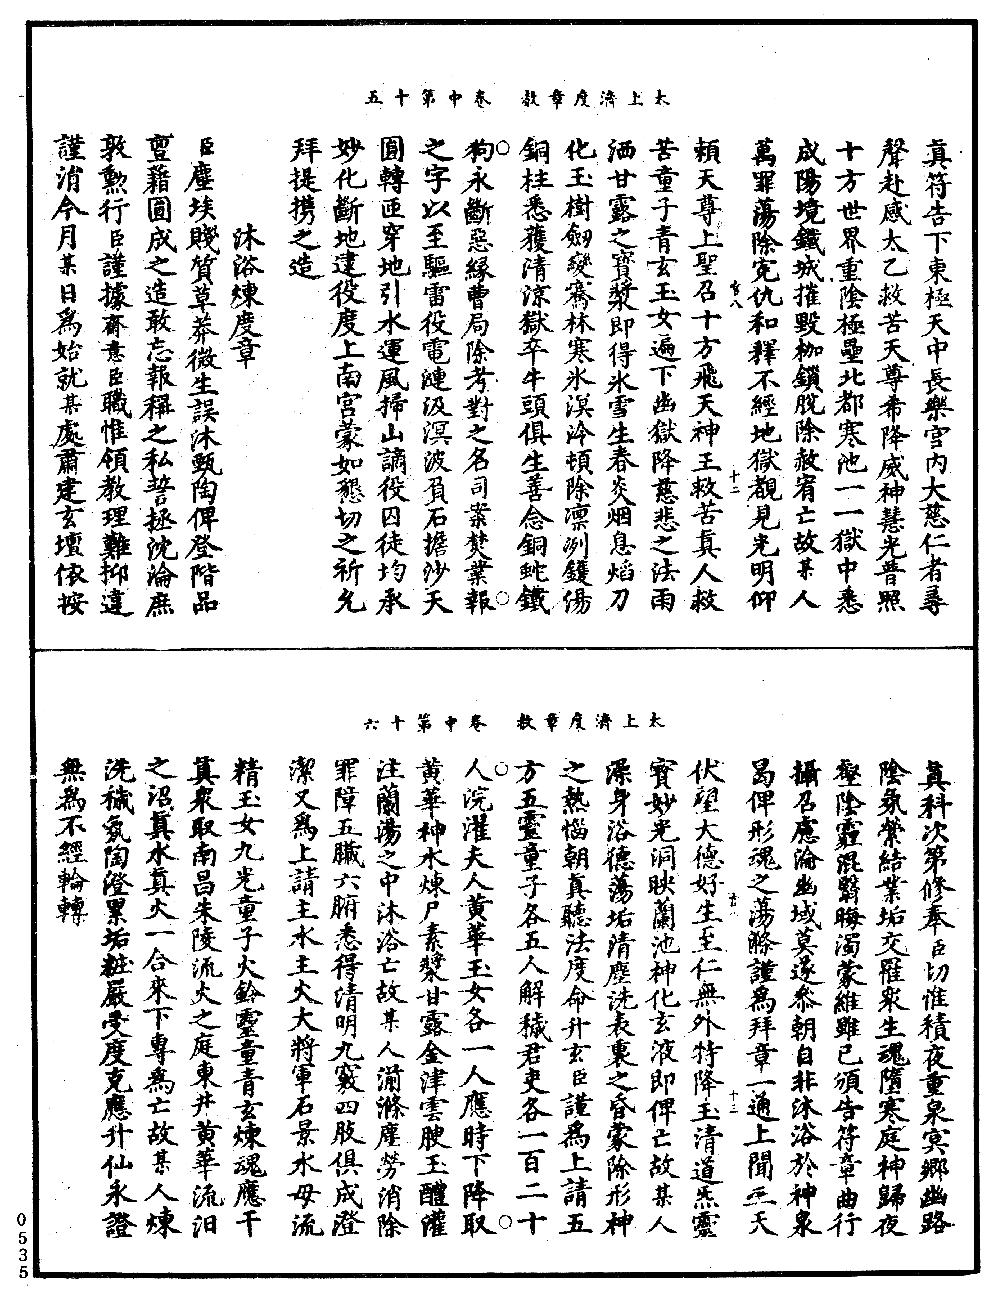 太上濟度章赦　卷中第十五
真符告下東極天中長樂宮內大慈仁者尋
聲赴感太乙救苦天尊希降威神慧光普照
十方世界重陰極壘北都寒池一一獄中悉
成陽境鐵城摧毀枷鎖脫除赦宥亡故某人
萬罪蕩除冤仇和釋不經地獄覩見光明仰
賴天尊上聖召十方飛天神王救苦真人救
苦童子青玄玉女遍下幽獄降慈悲之法雨
洒甘露之寶漿即得氷雪生春炎烟息焰刀
化玉樹劒變騫林寒氷溟泠頓除凛冽鑊湯
銅柱悉獲清涼獄卒牛頭俱生善念銅蛇鐵
狗永斷惡緣曹局除考對之名司案焚業報
之字以至驅雷役電漣汲溟波負石擔沙天
圓轉迊穿地引水運風掃山謫役囚徒均承
妙化斷地逮役度上南宮蒙如懇切之祈允
拜提携之造
沐浴煉度章
臣塵埃賤質草莽微生誤沐甄陶俾登階品
亶藉圓成之造敢忘報稱之私誓拯沈淪庶
敦勳行臣謹據齋意臣職惟領教理難抑違
謹涓今月某日爲始就某處肅建玄壇依按
太上濟度章赦　卷中第十六
真科次第修奉臣切惟積夜重泉冥鄉幽路
陰氛縈結業垢交羅衆生魂墮寒庭神歸夜
壑陰霾混翳晦濁蒙維雖已頒告符章曲行
攝召慮淪幽域莫遂叅朝自非沐浴於神泉
曷俾形魂之蕩滌謹爲拜章一通上聞三天
伏望大德好生至仁無外特降玉清道炁靈
寶妙光洞映蘭池神化玄液即俾亡故某人
澡身浴德蕩垢清塵洗表裏之昏蒙除形神
之熱惱朝真聽法度命升玄臣謹爲上請五
方五靈童子各五人解穢君吏各一百二十
人浣濯夫人黃華玉女各一人應時下降取
黃華神水煉尸素漿甘露金津雲腴玉醴灌
注蘭湯之中沐浴亡故某人湔滌塵勞消除
罪障五臟六腑悉得清明九竅四肢俱成澄
潔又爲上請主水主火大將軍石景水母流
精玉女九光童子火鈴靈童青玄煉魂應干
真衆取南昌朱陵流火之庭東井黃華流汨
之沼真水真火一合來下專爲亡故某人煉
洗穢氛陶澄累垢粧嚴受度克應升仙永證
無爲不經輪轉
0535